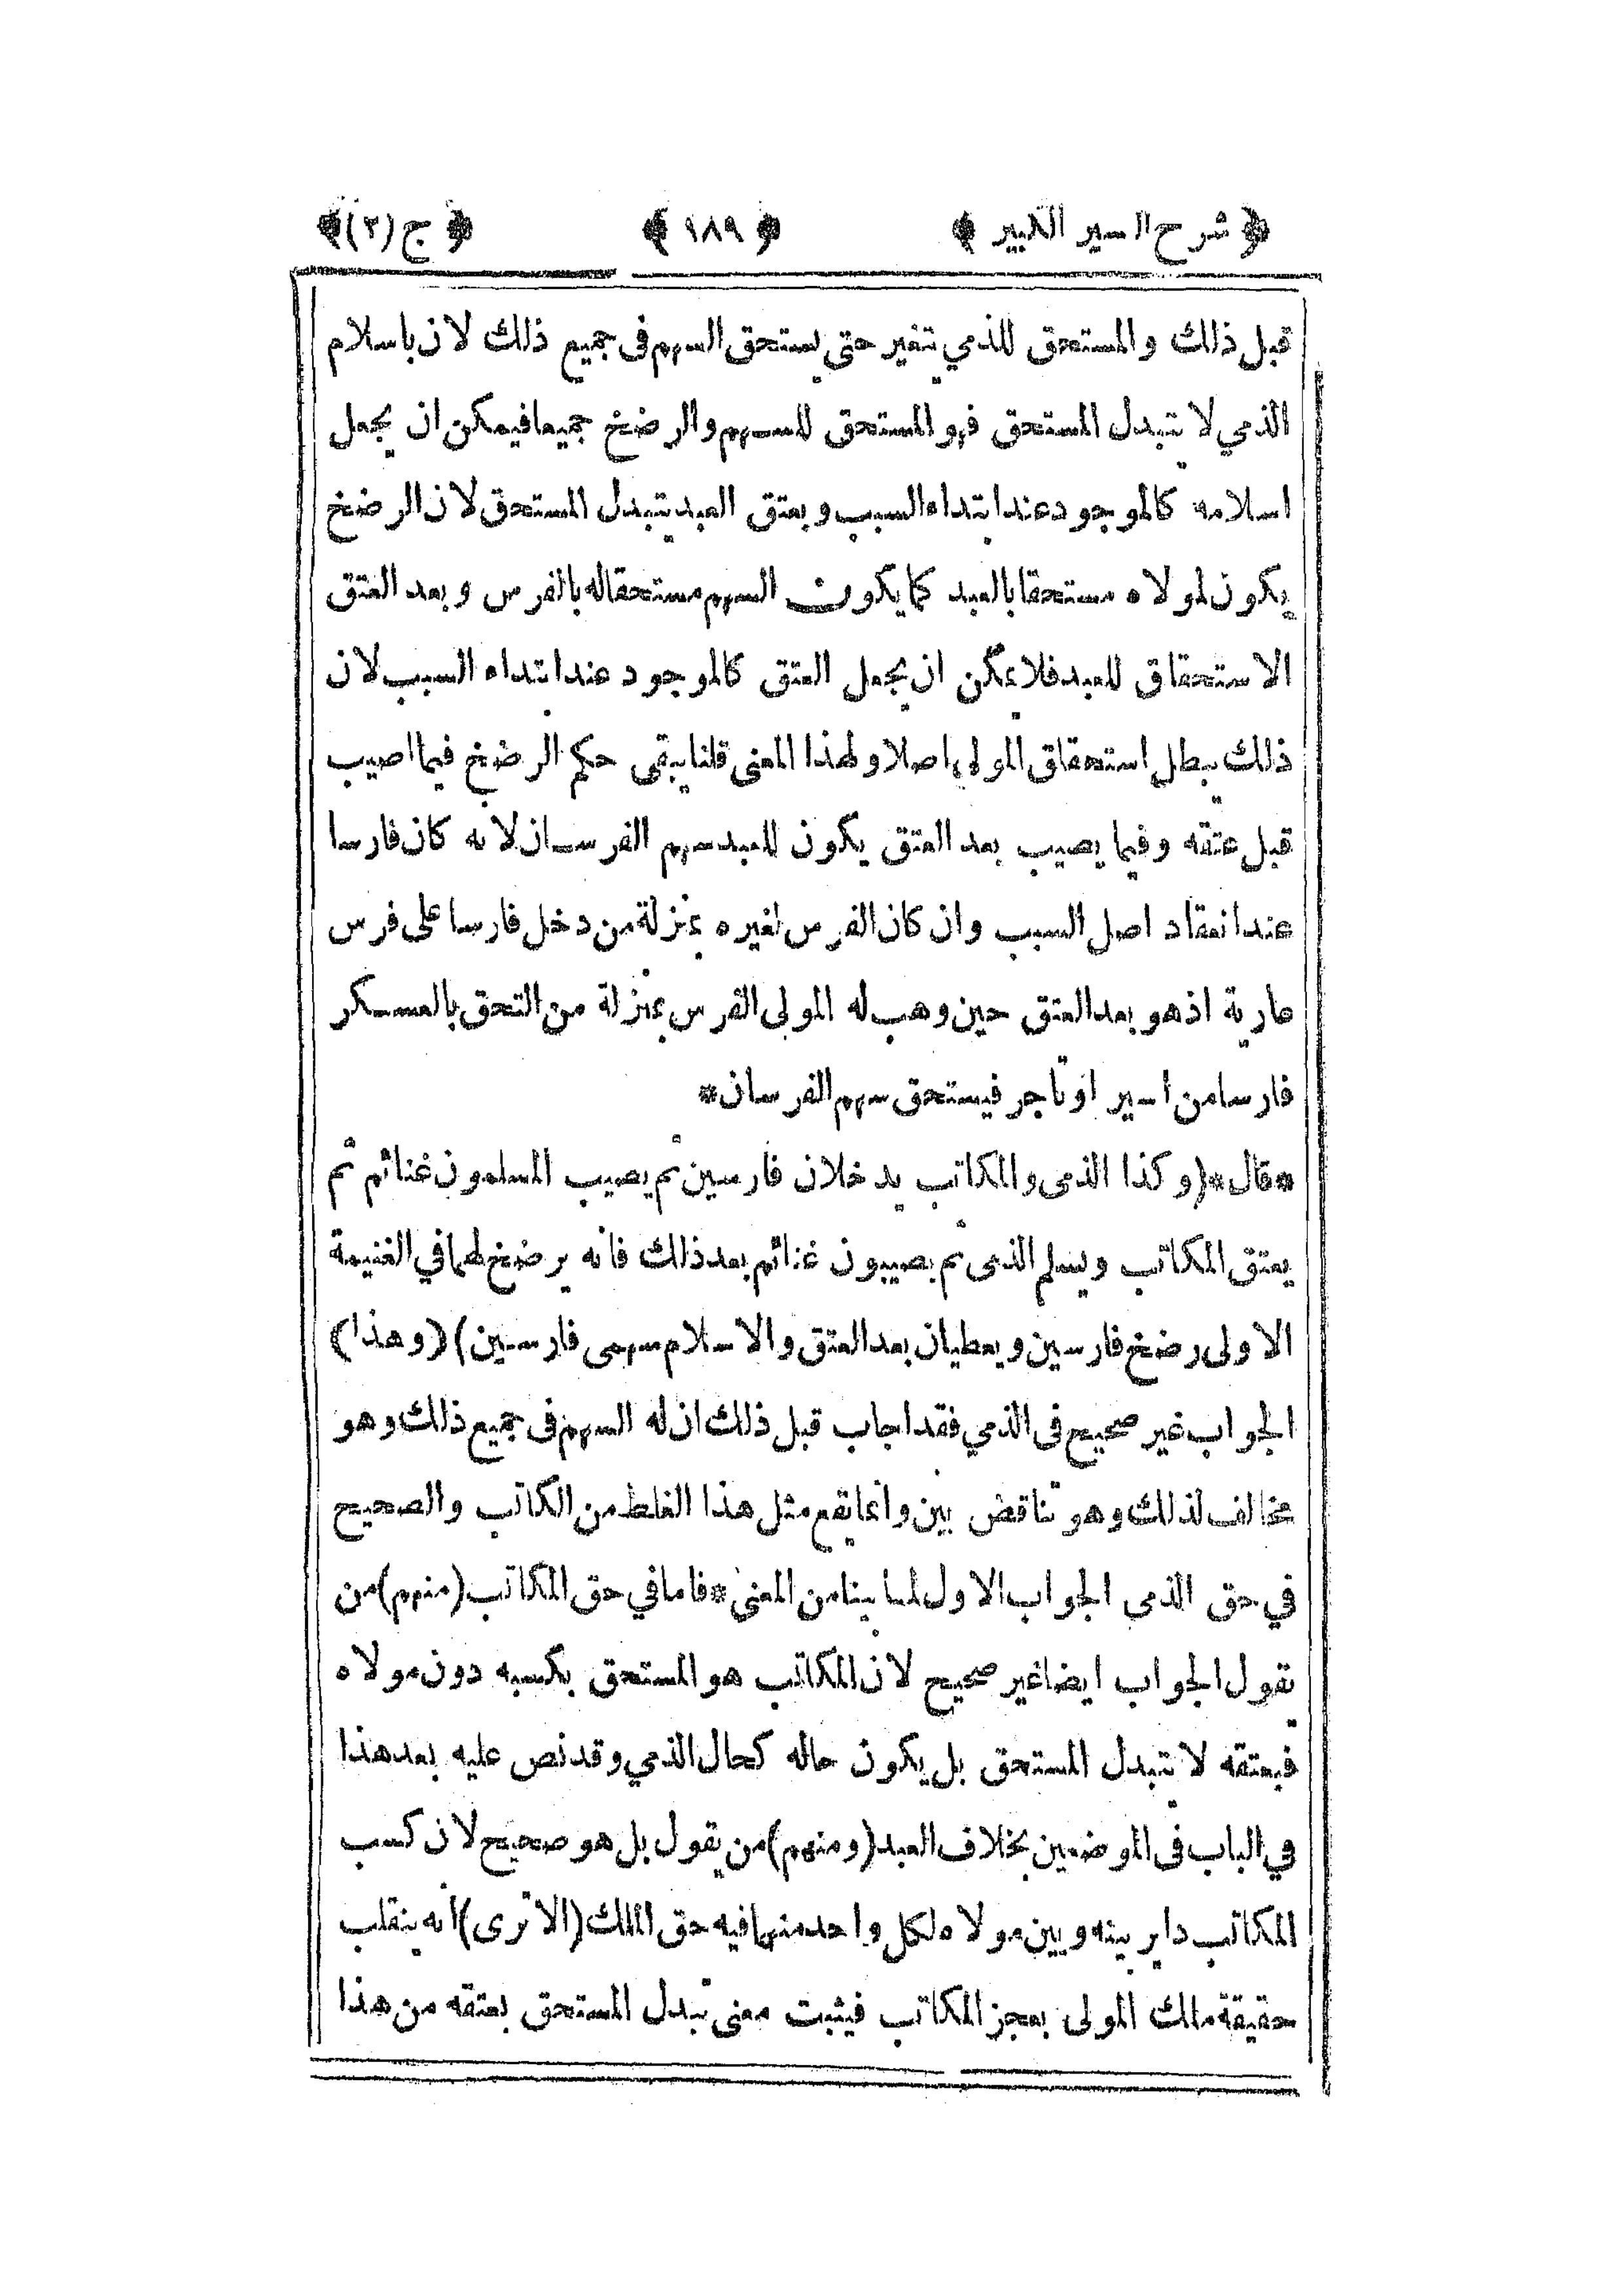 ﴿ شرح السير الكبير ﴾ ﴿ ١٨٩ ﴾ ﴿ ج (٢) ﴾
قبل ذلك والمستحق للذمي يتغير حتى يستحق السهم فى جميع ذلك لان باسلام
الذمي لا يتبدل المستحق فهو المستحق للسهم والرضخ جميعا فيمكن ان يجعل
اسلامه كالموجود عند ابتداء السبب وبعتق العبد يتبدل المستحق لان الرضخ
يكون لمولاه مستحقا بالعبد كما يكون السهم مستحقا له بالفرس وبعد العتق
الاستحقاق للعبد فلا يمكن ان يجعل العتق كالموجود عند ابتداء السبب لان
ذلك يبطل استحقاق المولى اصلا ولهذا المعنى قلنا يبقى حكم الرضخ فيما اصيب
قبل عتقه وفيما يصيب بعد العتق يكون للعبد سهم الفرسان لانه كان فارسا
عند انعقاد اصل السبب وان كان الفرس لغيره بمنزلة من دخل فارسا على فرس
عارية اذ هو بعد العتق حين وهب له المولى الفرس بمنزلة من التحق بالعسكر
فارسا من اسير او تاجر فيستحق سهم الفرسان*
*قال*(وكذا الذمى والمكاتب يدخلان فارسين ثم يصيب المسلمون غنائم ثم
يعتق المكاتب ويسلم الذمى ثم يصيبون غنائم بعد ذلك فانه يرضخ لهما في الغنيمة
الاولى رضخ فارسين ويعطيان بعد العتق والاسلام سهمى فارسين) (وهذا)
الجواب غير صحيح فى الذمي فقد اجاب قبل ذلك ان له السهم فى جميع ذلك وهو
مخالف لذلك وهو تناقض بين وانما يقع مثل هذا الغلط من الكاتب والصحيح
في حق الذمى الجواب الاول لما بينا من المعنى*فاما في حق المكاتب (منهم) من
يقول الجواب ايضا غير صحيح لان المكاتب هو المستحق بكسبه دون مولاه
فبعتقه لا يتبدل المستحق بل يكون حاله كحال الذمي وقد نص عليه بعد هذا
في الباب فى الموضعين بخلاف العبد (ومنهم) من يقول بل هو صحيح لان كسب
المكاتب داير بينه وبين مولاه لكل واحد منهما فيه حق الملك (الا ترى) انه ينقلب
حقيقة ملك المولى بعجز المكاتب فيثبت معنى تبدل المستحق بعتقه من هذا